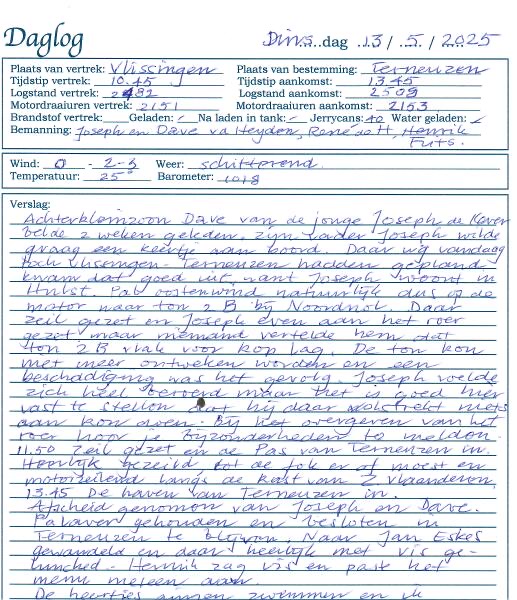 Daglog Dins...dag ..13/..5../ 2025
Plaats van vertrek: Vlissingen Plaats van bestemming: Terneuzen
Tijdstip vertrek: 10.45 Tijdstip aankomst: 13.45
Logstand vertrek: 2482 Logstand aankomst: 2509
Motordraaiuren vertrek: 2151 Motordraaiuren aankomst: 2153
Brandstof vertrek: Geladen: - Na laden in tank: - Jerrycans: 40 Water geladen: -
Bemanning: Joseph en Dave vd Heyden, René, Henrik
Wind: O - 2-3 Weer: schitterend.
Temperatuur: 25° Barometer: 1018
Verslag:
Achterkleinzoon Dave van de jonge Joseph de
belde 2 weken geleden. zijn vader Joseph wilde
graag een keertje aan boord. Daar wij vandaag
toch Vlissingen Terneuzen hadden gepland
kwam dat goed uit want Joseph woont in
Hulst. Pal oostenwind natuurlijk dus op de
motor naar ton 2B bij Noordnol. Daar
zeil gezet en Joseph even aan het roer
gezet maar niemand vertelde hem dat
ton 2B vlak voor kop lag. De ton kon
niet meer ontweken worden en een
beschadiging was het gevolg. Joseph voelde
zich heel beroerd maar het is goed hier
vast te stellen dat hij daar volstrekt niets
aan kon doen. Bij het overgeven van het
roer hoor je bijzonderheden te melden.
11.50 Zeil gezet en de Pas van Terneuzen in.
Heerlijk gezeild, tot de fok er af moest en
motorzeilend langs de kust van Z Vlaanderen.
13.45 De haven van Terneuzen in.
Afscheid genomen van Joseph en Dave.
Palaver gehouden en besloten in
Terneuzen te blijven. Naar Jan Eskes
gewandeld en daar heerlijk met vis ge-
lunched. Henrik zag vis en past het
menu meteen aan.
De heertjes gingen zwemmen en ik